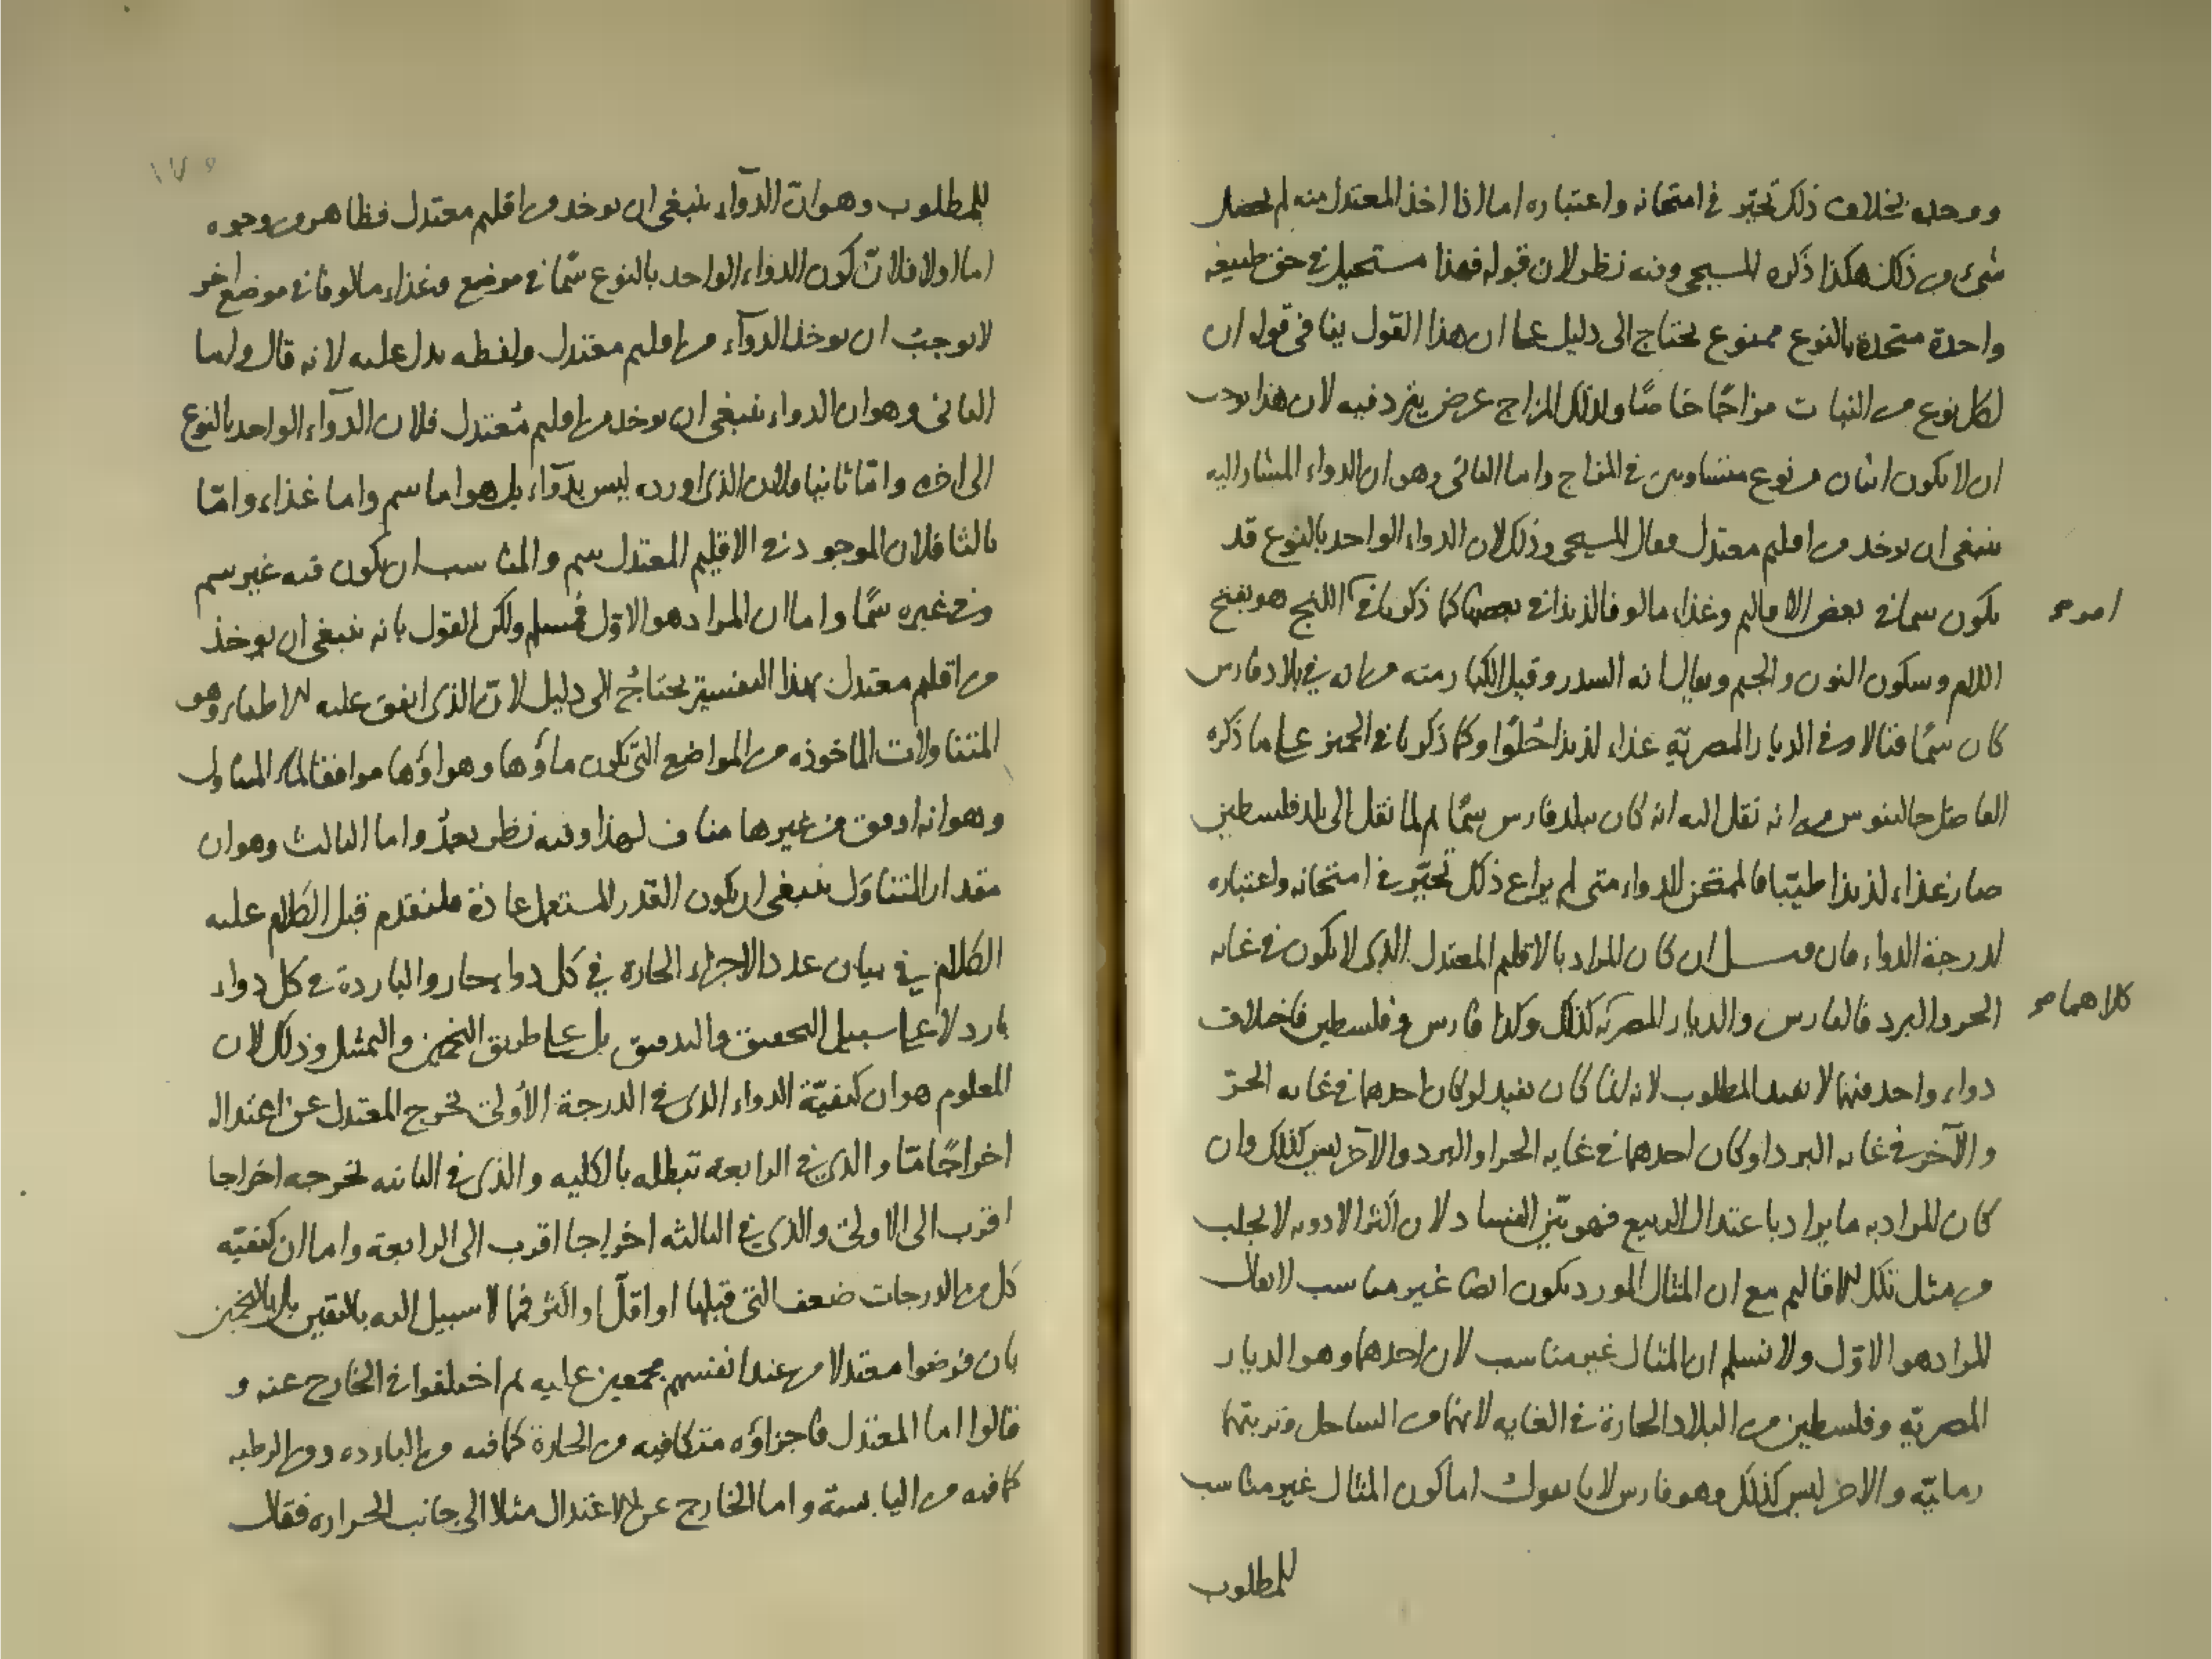 ووجده بخلاف ذلك تحيّر في امتحانه واعتباره اما اذا اخذ المعتدل منه لم يحصل
شيء من ذلك هكذا ذكره المسيحي وفيه نظر لان قوله فهذا مستحيل في حق طبيعه
واحدة متحدة بالنوع ممنوع يحتاج الى دليل على ان هذا القول ينافي قوله ان
لكل نوع من النبات مزاجًا خاصًا ولذلك المزاج عرض يتردد فيه لان هذا يوجب
ان لا يكون اثنان من نوع متساويين في المزاج واما الثاني وهو ان الدواء المشار اليه
ينبغي ان يوخذ من اقليم معتدل فقال المسيحي وذلك لان الدواء الواحد بالنوع قد
يكون سما في بعض الاقاليم وغذاء مالوفا لذيذا في بعضها كما ذكروا في اللبخ هو بفتح
اللام وسكون النون والجيم ويقال انه السدر وقيل الكبار منه من انه في بلاد فارس
كان سمًا قتالا وفي الديار المصريّة غذاء لذيذا حُلوًا وكما ذكروا في الجميز على ما ذكره
الفاضل جالينوس من انه نقل اليه انه كان ببلد فارس سمًا ثم لما نقل الى بلد فلسطين
صار غذاء لذيذا طيبًا فالممتحن للدواء متى لم يراع ذلك تحيّر في امتحانه واعتباره
لدرجة الدواء فان قيل ان كان المراد بالاقليم المعتدل الذي لا يكون في غايه
الحر والبرد فالفارس والديار المصريه كذلك وكذا فارس وفلسطين فاختلاف
دواء واحد فيهما لا يفيد المطلوب لانه انما كان يفيد لو كان احدهما في غايه الحرّ
والآخر في غايه البرد او كان احدهما في غايه الحر او البرد والآخر ليس كذلك وان
كان المراد به ما يراد باعتدال الربيع فهو بيّن الفساد لان اكثر الادويه لا يجلب
من مثل تلك الاقاليم مع ان المثال المورد يكون ايضا غير مناسب لا يقال
المراد هو الاوّل ولا نسلم ان المثال غير مناسب لان احدهما وهو الديار
المصريّه وفلسطين من البلاد الحارة في الغايه لانهما من الساحل وتربتهما
رمليّه والاخر ليس كذلك وهو فارس لانا نقول اما كون المثال غير مناسب
للمطلوب
كلاهما
للمطلوب وهو ان الدوآء ينبغي ان يوخذ من اقليم معتدل فظاهر من وجوه
اما اولا فلانّ كون الدواء الواحد بالنوع سمّا في موضع وغذاء مالوفا في موضع اخر
لا يوجبُ ان يوخذ الدوآء من اقليم معتدل ولفظه يدل عليه لانه قال واما
الثاني وهو ان الدواء ينبغي ان يوخذ من اقليم مُعتدل فلان الدوآء الواحد بالنوع
الى اخره وامّا ثانيا فلان الذي اورده ليس بدوآء بل هو اما سم واما غذاء وامّا
ثالثا فلان الموجود في الاقليم المعتدل سم والمناسب ان يكون فيه غير سم
وفي غيره سمًّا واما ان المراد هو الاوّل فمُسلم ولكن القول بانه ينبغي ان يوخذ
من اقليم معتدل بهذا التفسير يحتاجُ الى دليل لانّ الذي اتفق عليه الاطباء وهو
المتناولات الماخوذه من المواضع التي تكون ماؤها وهواؤها موافقا لذلك المتناول
وهو انه اوفق من غيرها مناف لهذا وفيه نظر بعدُ واما الثالث وهو ان
مقدار المتناوَل ينبغي ان يكون القدر المستعمل عادة فلنقدم قبل الكلام عليه
الكلام في بيان عدد الاجزاء الحارة في كل دواء حار والباردة في كل دواء
بارد لا على سبيل التحقيق والتدقيق بل على طريق التخمين والتمثيل وذلك لان
المعلوم هو ان كيفيّة الدواء الذي في الدرجة الأولى تخرج المعتدل عن اعتداله
اخراجًا مّا والذي في الرابعه تبطله بالكليه والذي في الثانيه تخرجه اخراجا
اقرب الى الاولى والذي في الثالثه اخراجا اقرب الى الرابعة واما ان كيفيّه
كل من الدرجات ضعف التي قبلها او اقلّ او اكثر فمما لا سبيل اليه باليقين بل بالتخمين
بان فرضوا معتدلا من عند انفسهم مجمعين عليه ثم اختلفوا في الخارج عنه و
قالوا اما المعتدل فاجزاؤه متكافيه من الحارة كما فيه من البارده ومن الرطبه
كما فيه من اليابسة واما الخارج عن الاعتدال مثلا الى جانب الحراره فقال